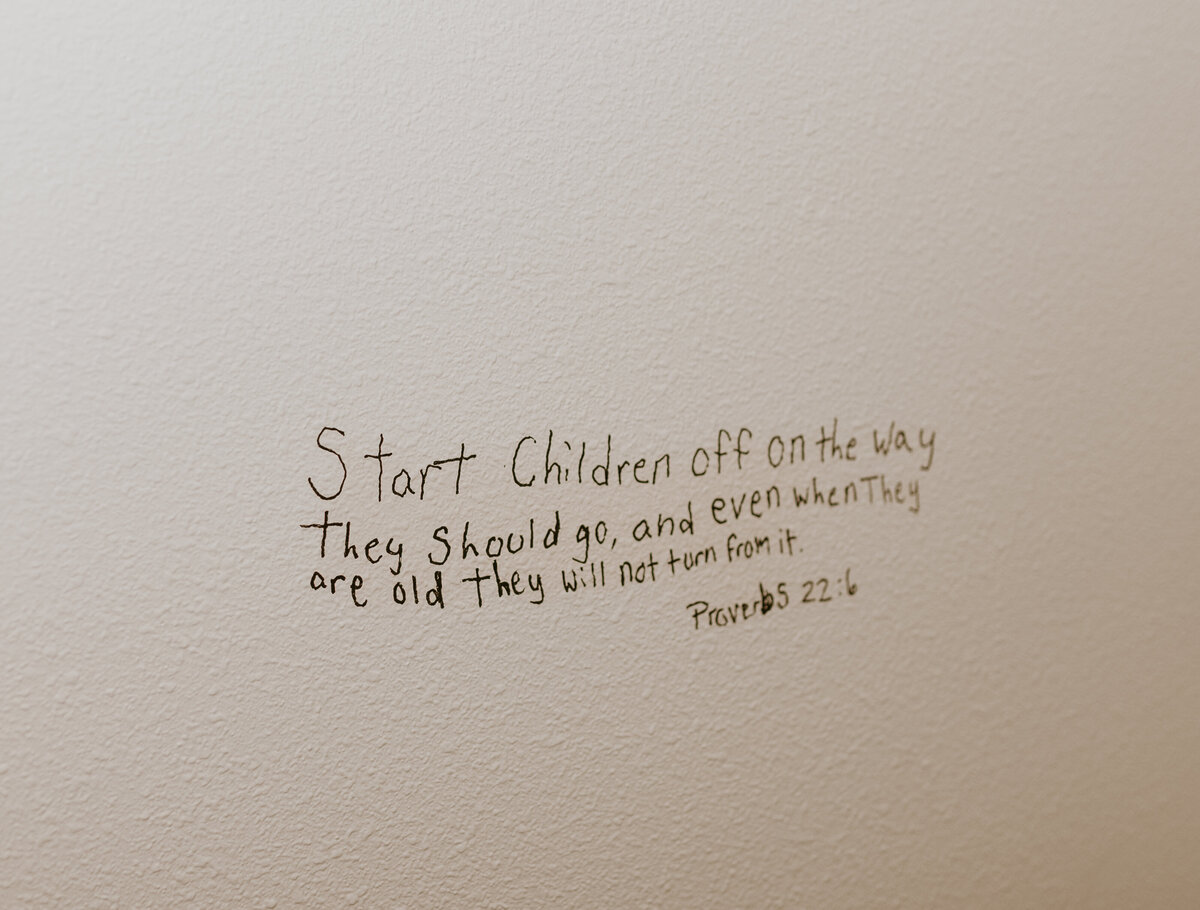 Start Children off on the way
they should go, and even when They
are old they will not turn from it.
Proverbs 22:6